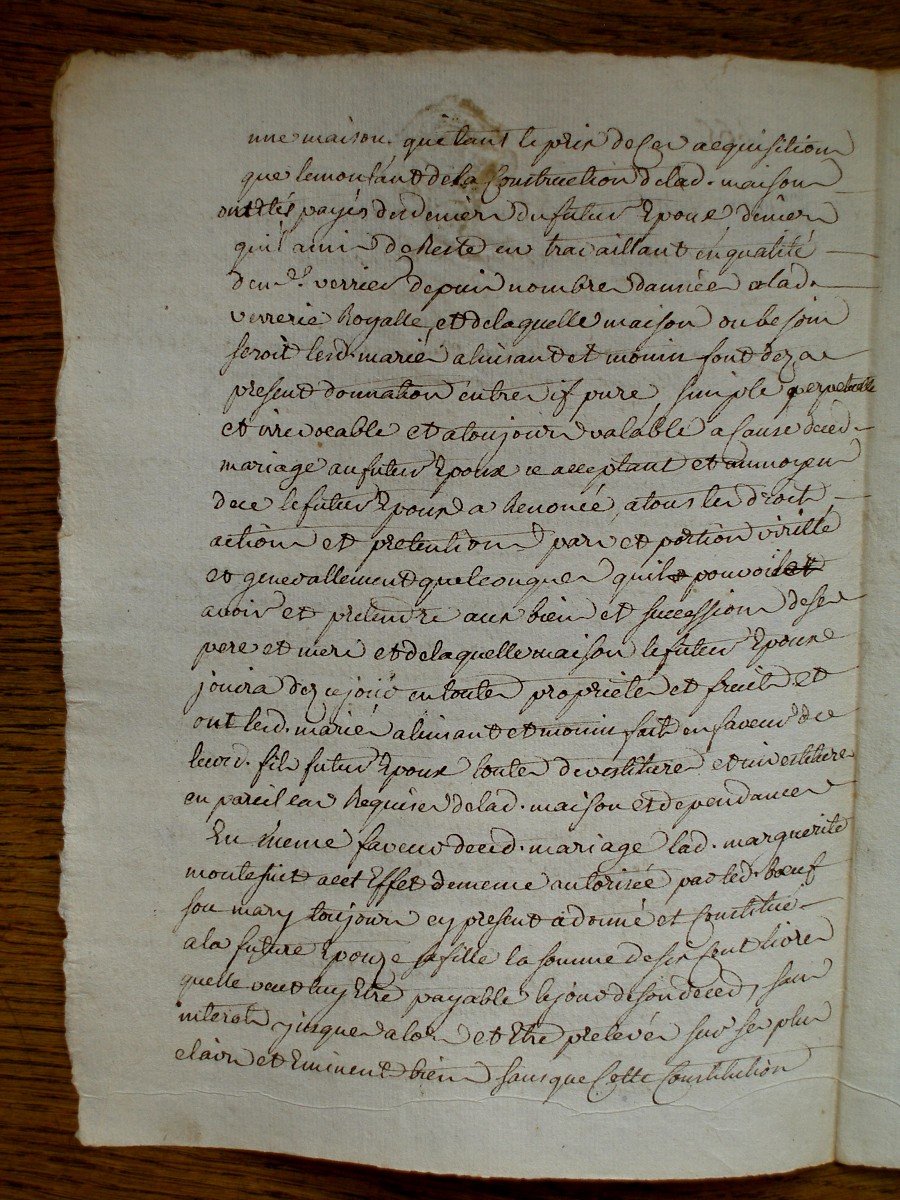 une maison. que tant le prix de ces acquisitions
que le montant de la Construction de lad. maison
ont étés payés des deniers du futur Epoux, deniers
qu'il a mis de Reste en travaillant en qualité
de m.e verrier depuis nombre dannées a lad.
verrerie Royalle, et de laquelle maison ou besoin
seroit lesd. mariés alinsant et monin font dez a
present donnation entre vif pure, simple perpetuelle
et irrevocable et a toujours valable a Cause dud.
mariage au futur Epoux ce acceptant et au moyen
de ce le futur Epoux a Renoncé, a tous les droits
actions et pretentions, part et portion virille
et generallement quelconques quil pouvoit
avoir et pretendre aux biens et succession de ses
pere et mere et de laquelle maison le futur Epoux
jouira dez ce jour en toutes proprietés et fruits et
ont lesd. mariés alinsant et monin fait en faveur de ce
leurd. fils futur Epoux toutes devestitures et investitures
en pareil cas Requises de lad. maison et dependances
En même faveur dud. mariage lad. marguerite
montesuit a cet Effet de meme autorisée par led. Bœuf
son mary toujours cy present a donné et Constitué
a la future Epouze sa fille la somme de six cent livres
quelle veut luy Etre payable le jour de son deced, sans
interets jusques alors et Etre prelevés sur ses plus
clairs et Eminents biens sans que Cette Constitution